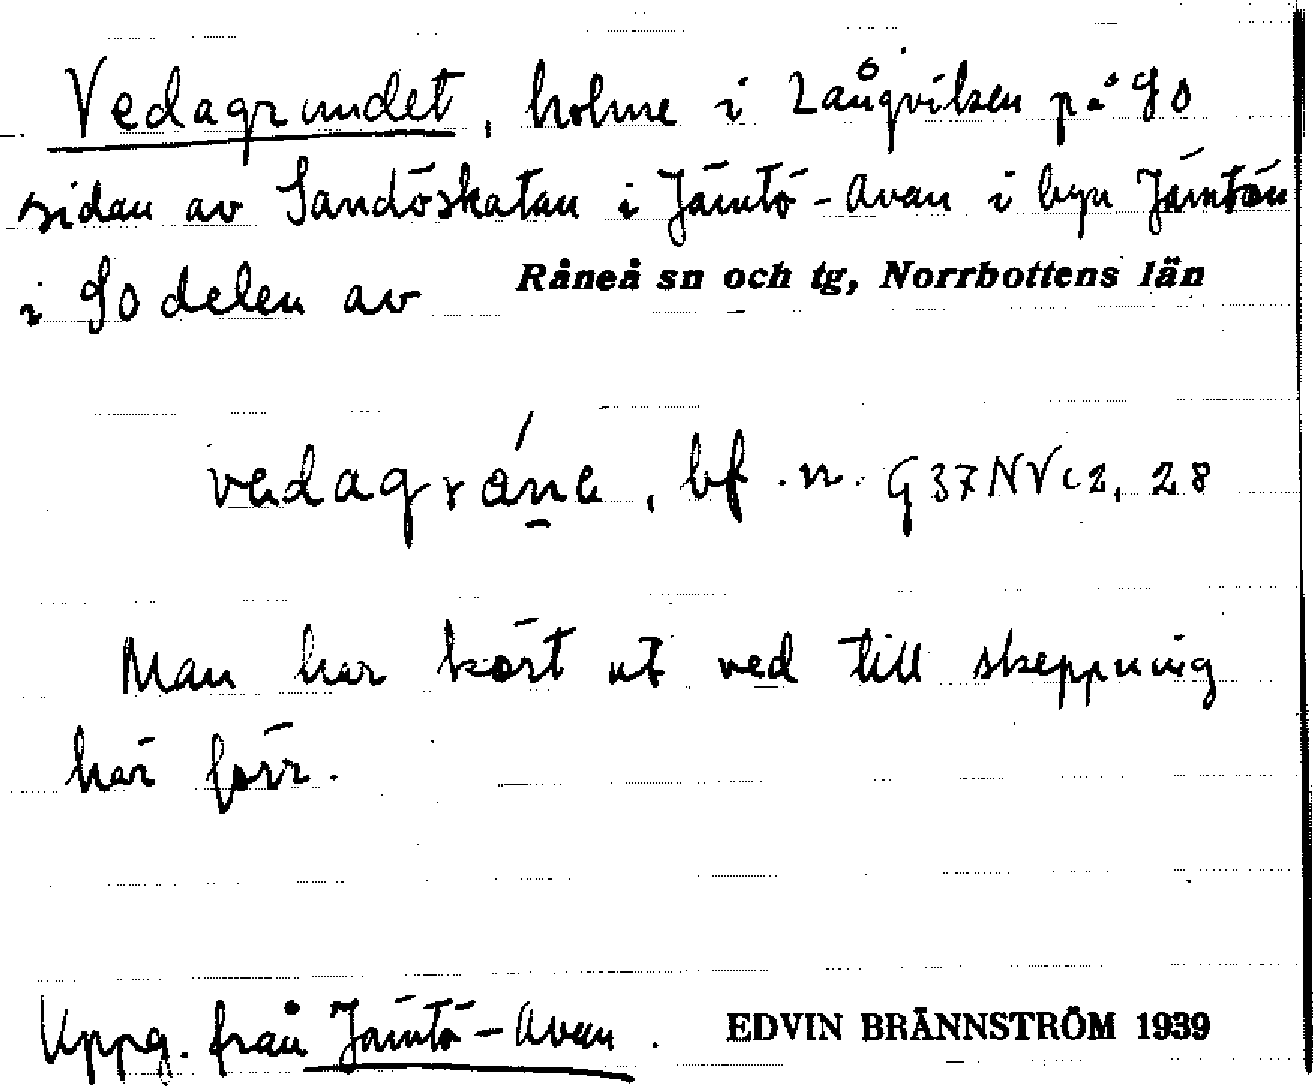 Vedagrundet, holme i Långviken på SO
sidan av Sandöskatan i Jämtö-Avan i byn Jämtön
i SO delen av Råneå sn och tg, Norrbottens län
bf. n. G37NVc2, 28
Man har kört ut ved till skeppning
här förr.
Uppg. från Jämtö-Avan. EDVIN BRÄNNSTRÖM 1939